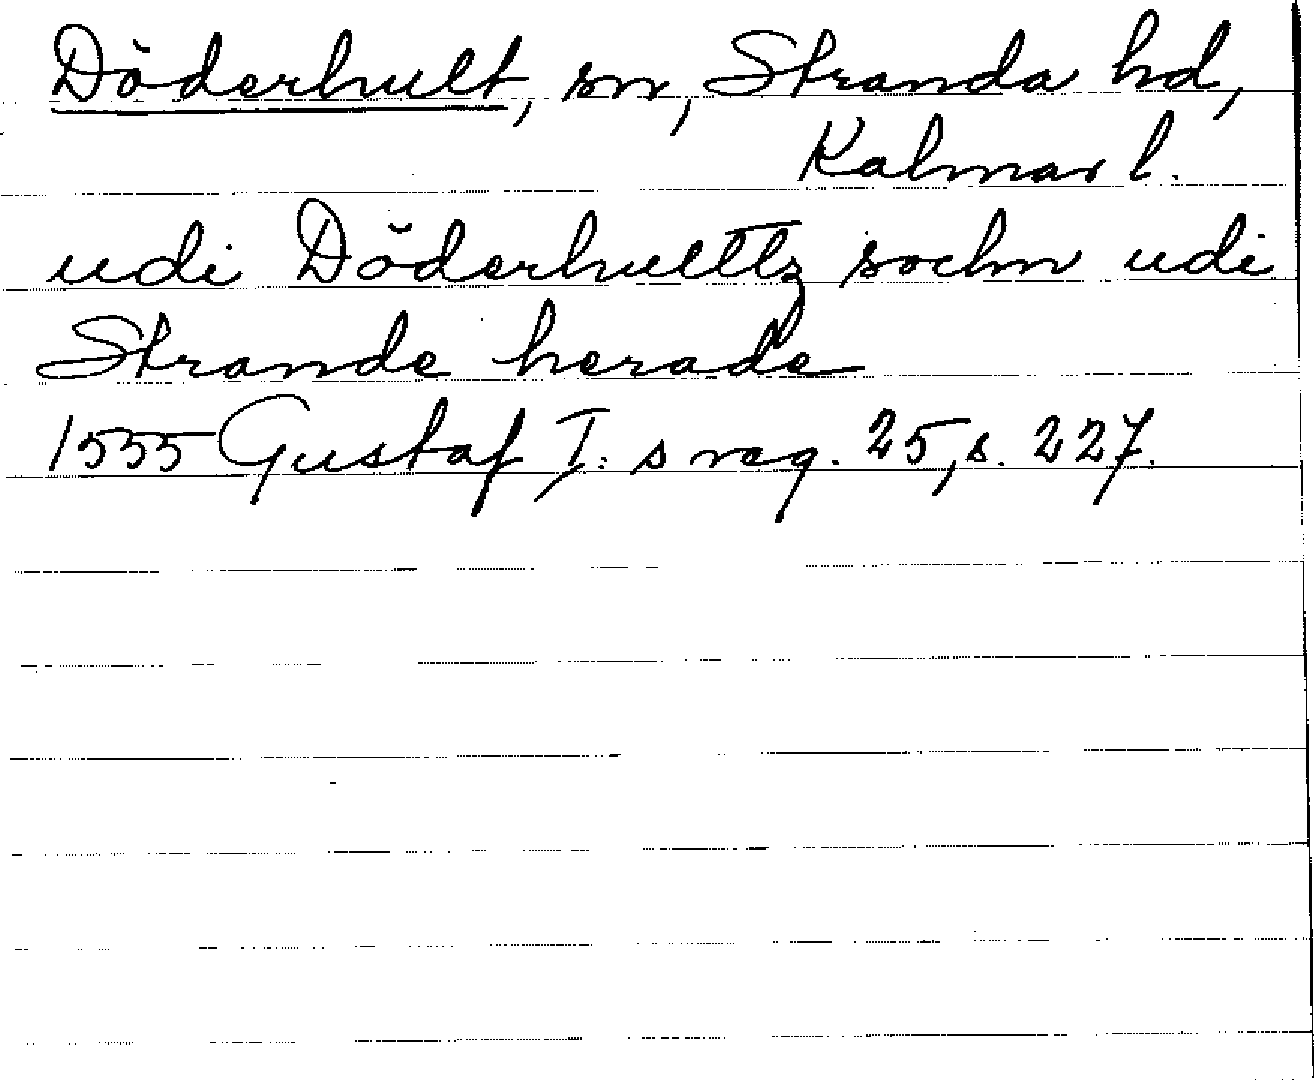 Döderhult, sn, Stranda hd,
Kalmar l.
udi Döderhulttz sochn udi
Strande herade
1555 Gustaf I: s reg. 25, s. 227.